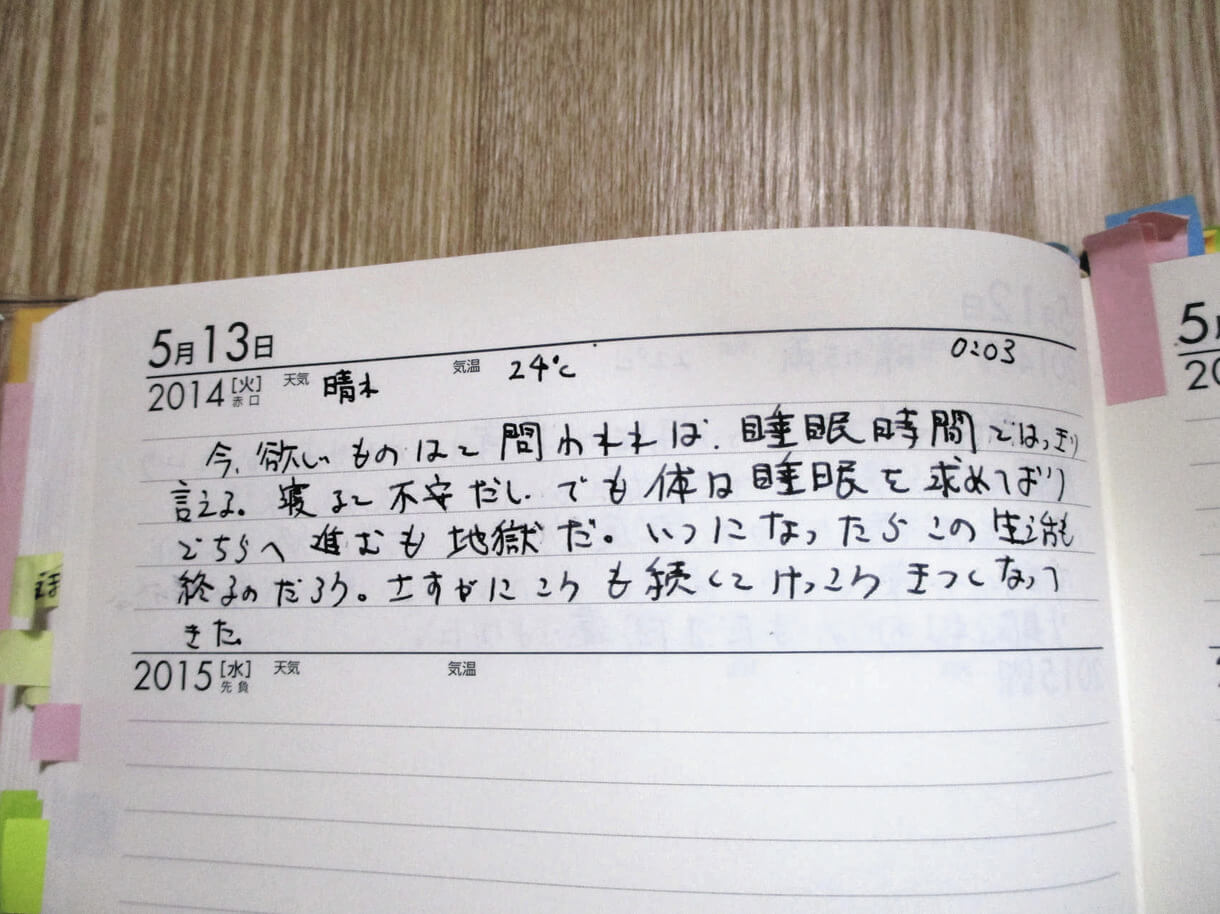 5月13日
2014[火]赤口 天気 晴れ 気温 24℃ 0:03
今、欲しいものはと問われれば、睡眠時間とはっきり
言える。寝ると不安だし、でも体は睡眠を求めてばかり
どちらへ進むも地獄だ。いつになったらこの生活も
終るのだろう。さすがにこうも続くとけっこうきつくなって
きた
2015[水]先負 天気 気温
5月
20